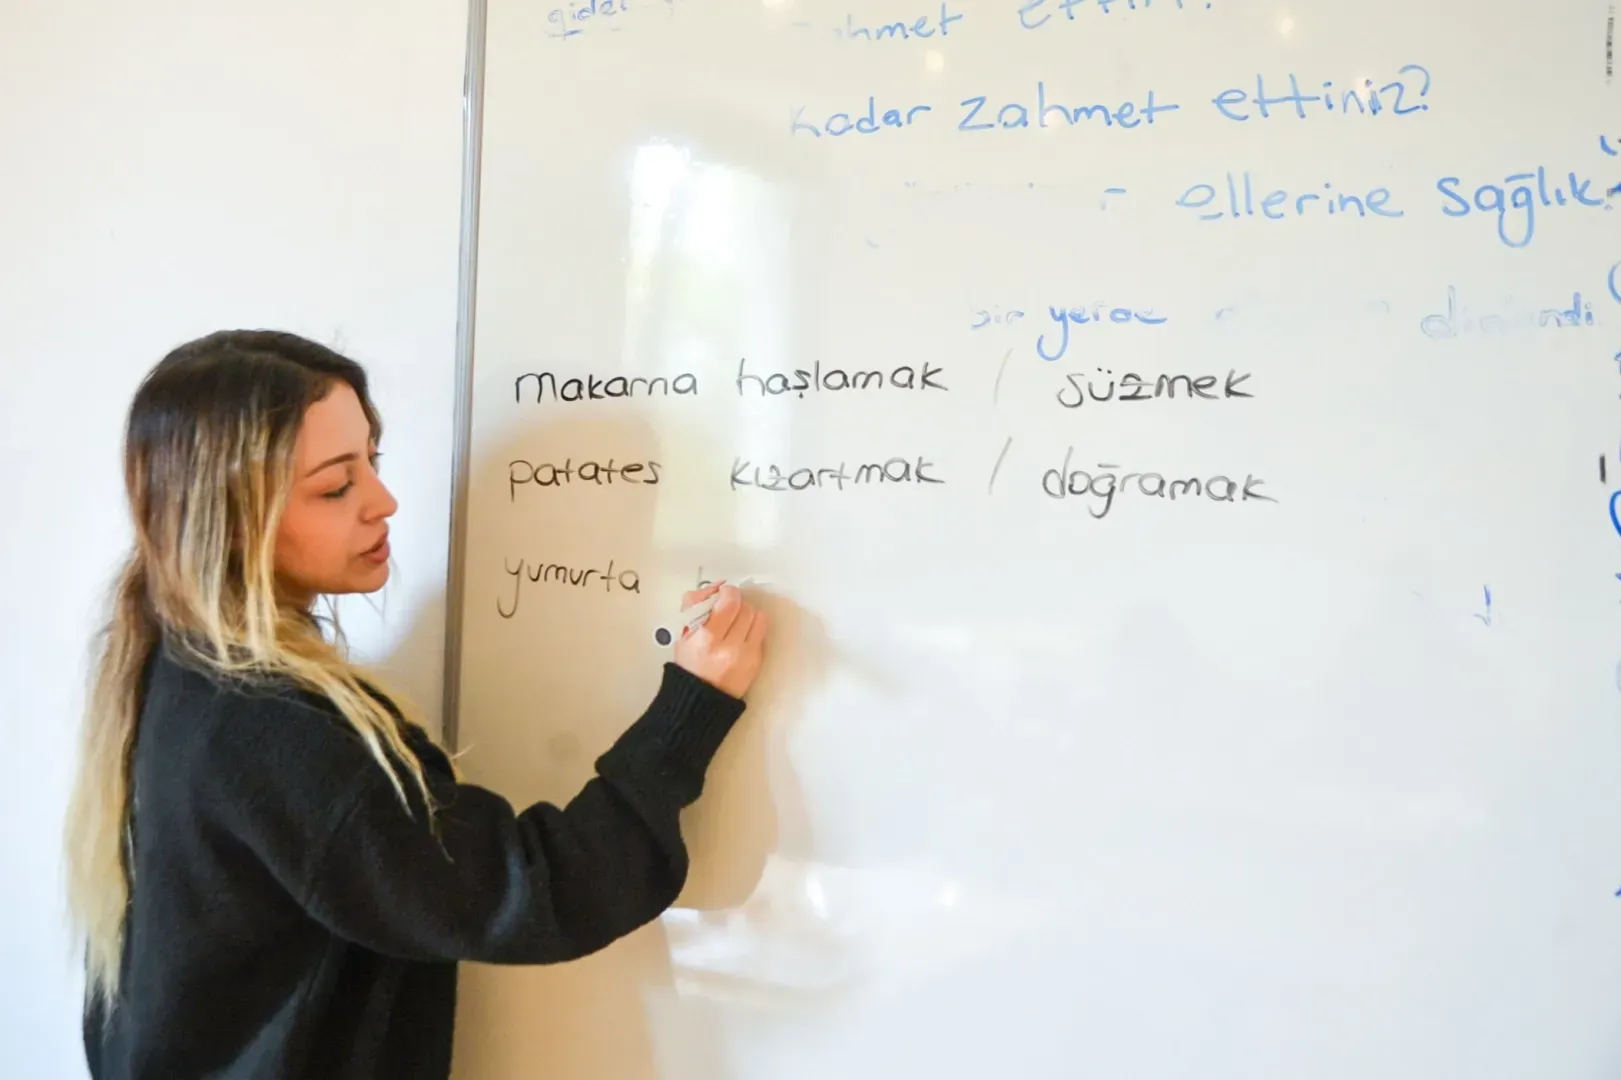 zahmet ettin?
kadar zahmet ettiniz?
ellerine sağlık
bir yerde
makarna haşlamak / süzmek
patates kızartmak / doğramak
yumurta